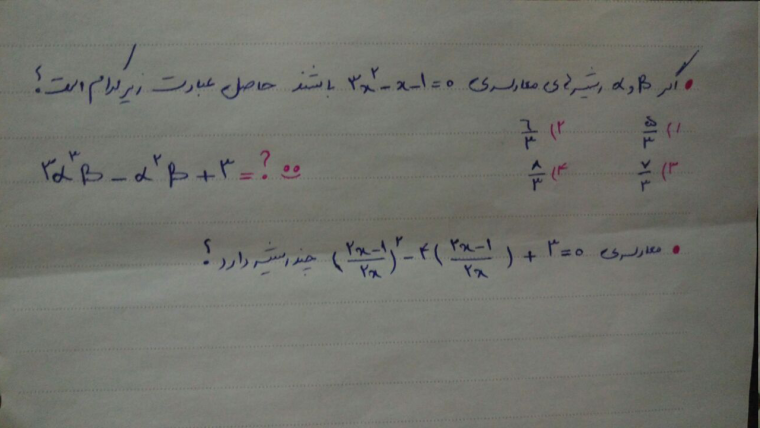 • اگر α و β ریشه‌های معادله‌ی ۳x^۲ - x - ۱ = ۰ باشند حاصل عبارت زیر کدام است؟
۱) ۵/۳ ۲) ۶/۳
۳) ۷/۳ ۴) ۸/۳
۳α^۳β - α^۲β + ۳ = ?
• معادله‌ی (۲x-۱/۲x)^۲ - ۴(۲x-۱/۲x) + ۳ = ۰ چند ریشه دارد؟